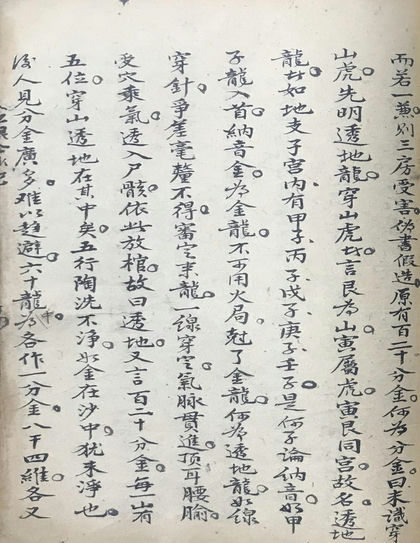 而若一兼則三房受害偽書假造原有百二十分金何為分金曰未識穿
山虎先明透地龍穿山虎如言艮為山寅屬虎寅艮同宮故名透地
龍如地支子宮內有甲子丙子戊子庚子壬子是何子論納音如甲
子龍入首納音金為金龍不可用火局尅了金龍何為透地龍如線
穿針爭差毫釐不得審定來龍一線穿定氣脉貫進頂耳腰腧
受穴乘氣透入尸骸依此放棺故曰透地又言百二十分金每一山有
五位穿山透地在其中矣五行陶洗不净如金在沙中犹未淨也
後人見分金廣多难以趋避六十龍為各作一分金八干四維各又